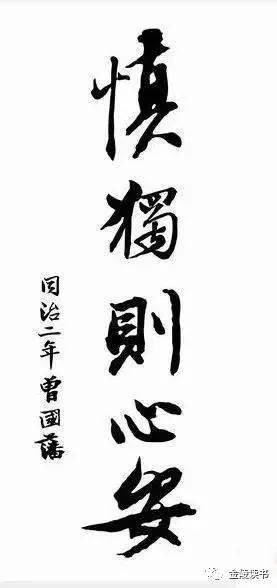 慎獨則心安
同治二年曾國藩
金陵读书